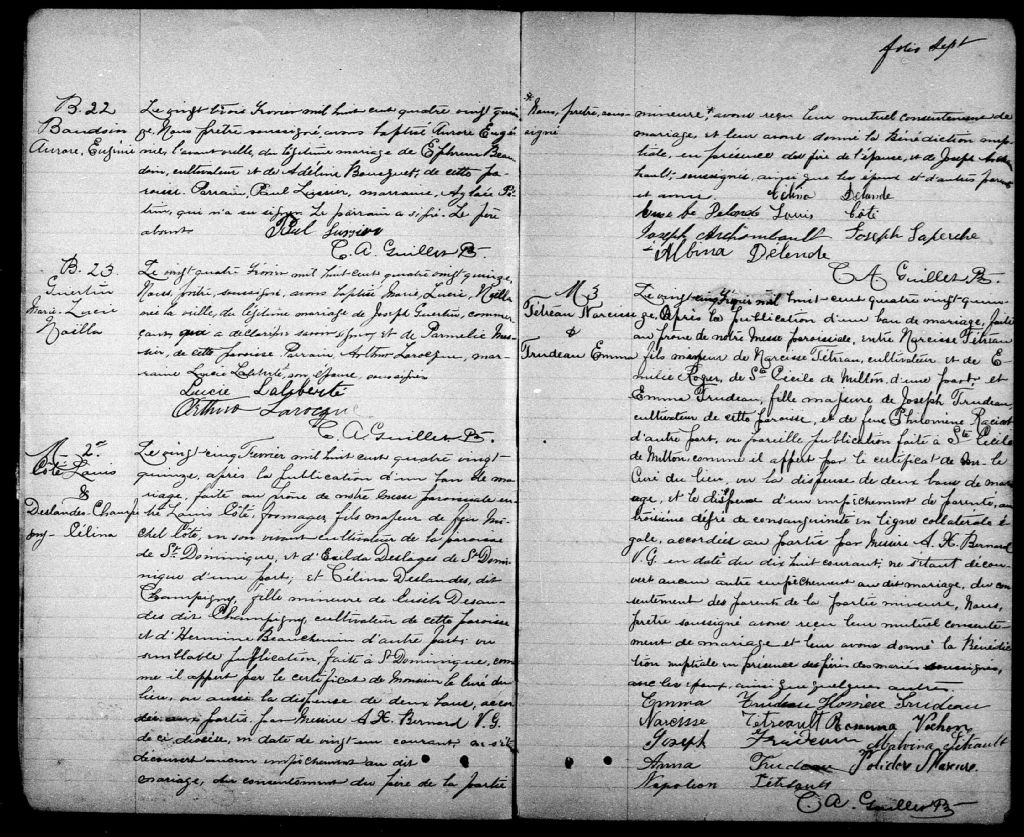 folio Sept
B. 22
Baudoin
Aurore, Eugénie
Le vingt trois Février mil huit cent quatre vingt quin
ze, Nous prêtre soussigné, avons baptisé Aurore Eugé
nie, du légitime mariage de Ephrem Beau
doin, cultivateur et de Adéline Bousquet, de cette pa
roisse. Parrain, Paul Lussier, marraine, Aglaé Pé
trin, qui n'a su signer. Le parrain a signé. Le père
absent.
Paul Lussier
C. A. Guillet Ptr
B. 23
Guertin
Marie-Lucie
Le vingt quatre Février mil huit cent quatre vingt quinze,
Nous, prêtre, soussigné, avons baptisé Marie, Lucie,
née la veille, du légitime mariage de Joseph Guertin, commer
çant, qui a déclaré savoir signer et de Parmélie
de cette paroisse. Parrain, Arthur Larocque, mar
raine Lucie Laliberté, son épouse, soussignés
Lucie Laliberté
Arthur Larocque
C. A. Guillet Ptr
M. 2e
Côté Louis
&
Deslandes Champi
gny - Célina
Le vingt cinq Février mil huit cent quatre vingt
quinze, après la publication d'un ban de ma
riage, faite au prône de notre messe paroissiale en
tre Louis Côté, fromager, fils majeur de feu Mi
chel Côté, en son vivant cultivateur de la paroisse
de St. Dominique, et d'Exilda Deslages de St Domi
nique d'une part; et Célina Deslandes, dit
Champigny, fille mineure de Deslan
des dit Champigny, cultivateur de cette paroisse
et d'Hermine Beauchemin d'autre part; vu
semblable publication, faite à St Dominique, com
me il appert par le certificat de Monsieur le curé du
lieu, vu aussi la dispense de deux bans, accor
dée aux parties par Messire A. X. Bernard V. G.
de ce diocèse, en date de vingt un courant; ne s'ét
découvert aucun empêchement au dit
mariage, du consentement du père de la partie
* Nous, prêtre, sous-
signé
mineure* avons reçu leur mutuel consentement de
mariage, et leur avons donné la Bénédiction nup
tiale, en présence du père de l'épouse, et de Joseph Archam
bault, soussignés, ainsi que les époux et d'autres parents
et amis.
Célina Delande
Delande Louis Côté
Joseph Archambault Joseph Laperche
Albina Delende
C A Guillet Ptr
M 3
Tétreau Narcisse
&
Trudeau Emma
Le vingt cinq Février mil huit-cent quatre vingt quin
ze, Après la publication d'un ban de mariage, faite
au prône de notre Messe paroissiale, entre Narcisse Tétreau
fils majeur de Narcisse Tétreau, cultivateur et de E
milie Roger, de Ste Cécile de Milton, d'une part et
Emma Trudeau, fille majeure de Joseph Trudeau,
cultivateur de cette paroisse, et de feue Philomène Racicot
d'autre part, vu pareille publication faite à Ste Cécile
de Milton, comme il appert par le certificat de M. le
Curé du lieu, vu la dispense de deux bans de mari
age, et la dispense d'un empêchement de parenté, au
troisième degré de consanguinité en ligne collatérale é
gale, accordées au parties par Messire A. X. Bernard
V. G. en date du dix huit courant, ne s'étant décou
vert aucun autre empêchement au dit mariage, du con
sentement des parents de la partie mineure, Nous,
prêtre soussigné avons reçu leur mutuel consente
ment de mariage et leur avons donné la Bénédic
tion nuptiale en présence des pères des mariés soussignés,
avec les époux, ainsi que quelques autres.
Emma Trudeau Homère Trudeau
Narcisse Tétreault Rosanna Vachon
Joseph Trudeau Malvina Tétrault
Anna Trudeau Polidor
Napoleon Tétrault
C A. Guillet Ptr